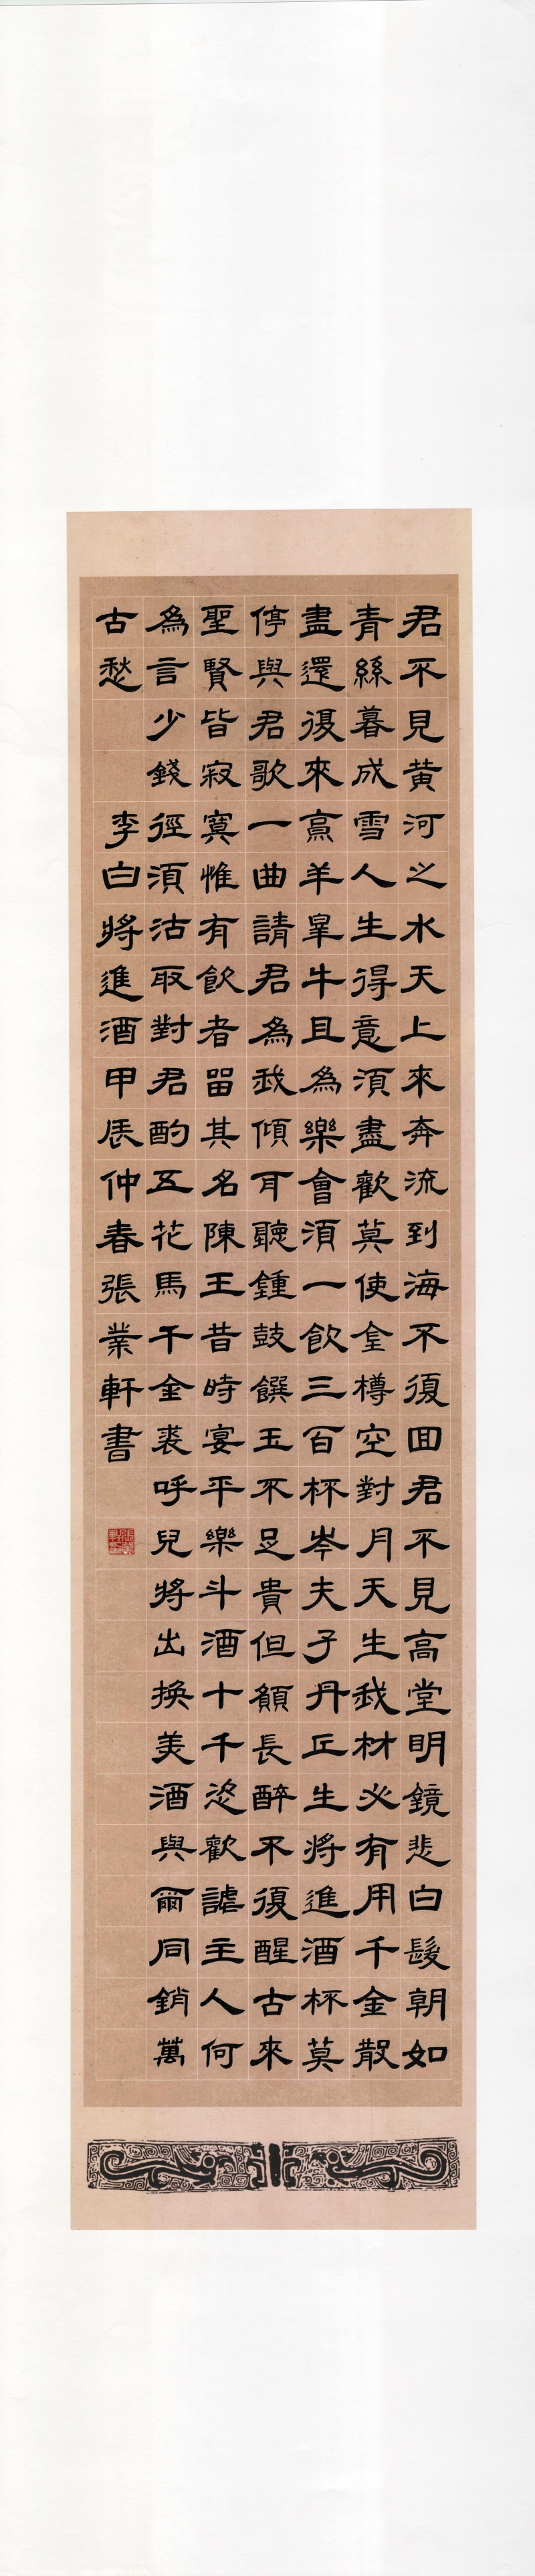 君不見黄河之水天上來奔流到海不復回君不見高堂明鏡悲白髮朝如
青絲暮成雪人生得意須盡歡莫使金樽空對月天生我材必有用千金散
盡還復來烹羊宰牛且為樂會須一飲三百杯岑夫子丹丘生將進酒杯莫
停與君歌一曲請君為我傾耳聽鍾鼓饌玉不足貴但願長醉不復醒古來
聖賢皆寂寞惟有飲者留其名陳王昔時宴平樂斗酒十千恣歡謔主人何
為言少錢徑須沽取對君酌五花馬千金裘呼兒將出換美酒與爾同銷萬
古愁 李白將進酒甲辰仲春張業軒書